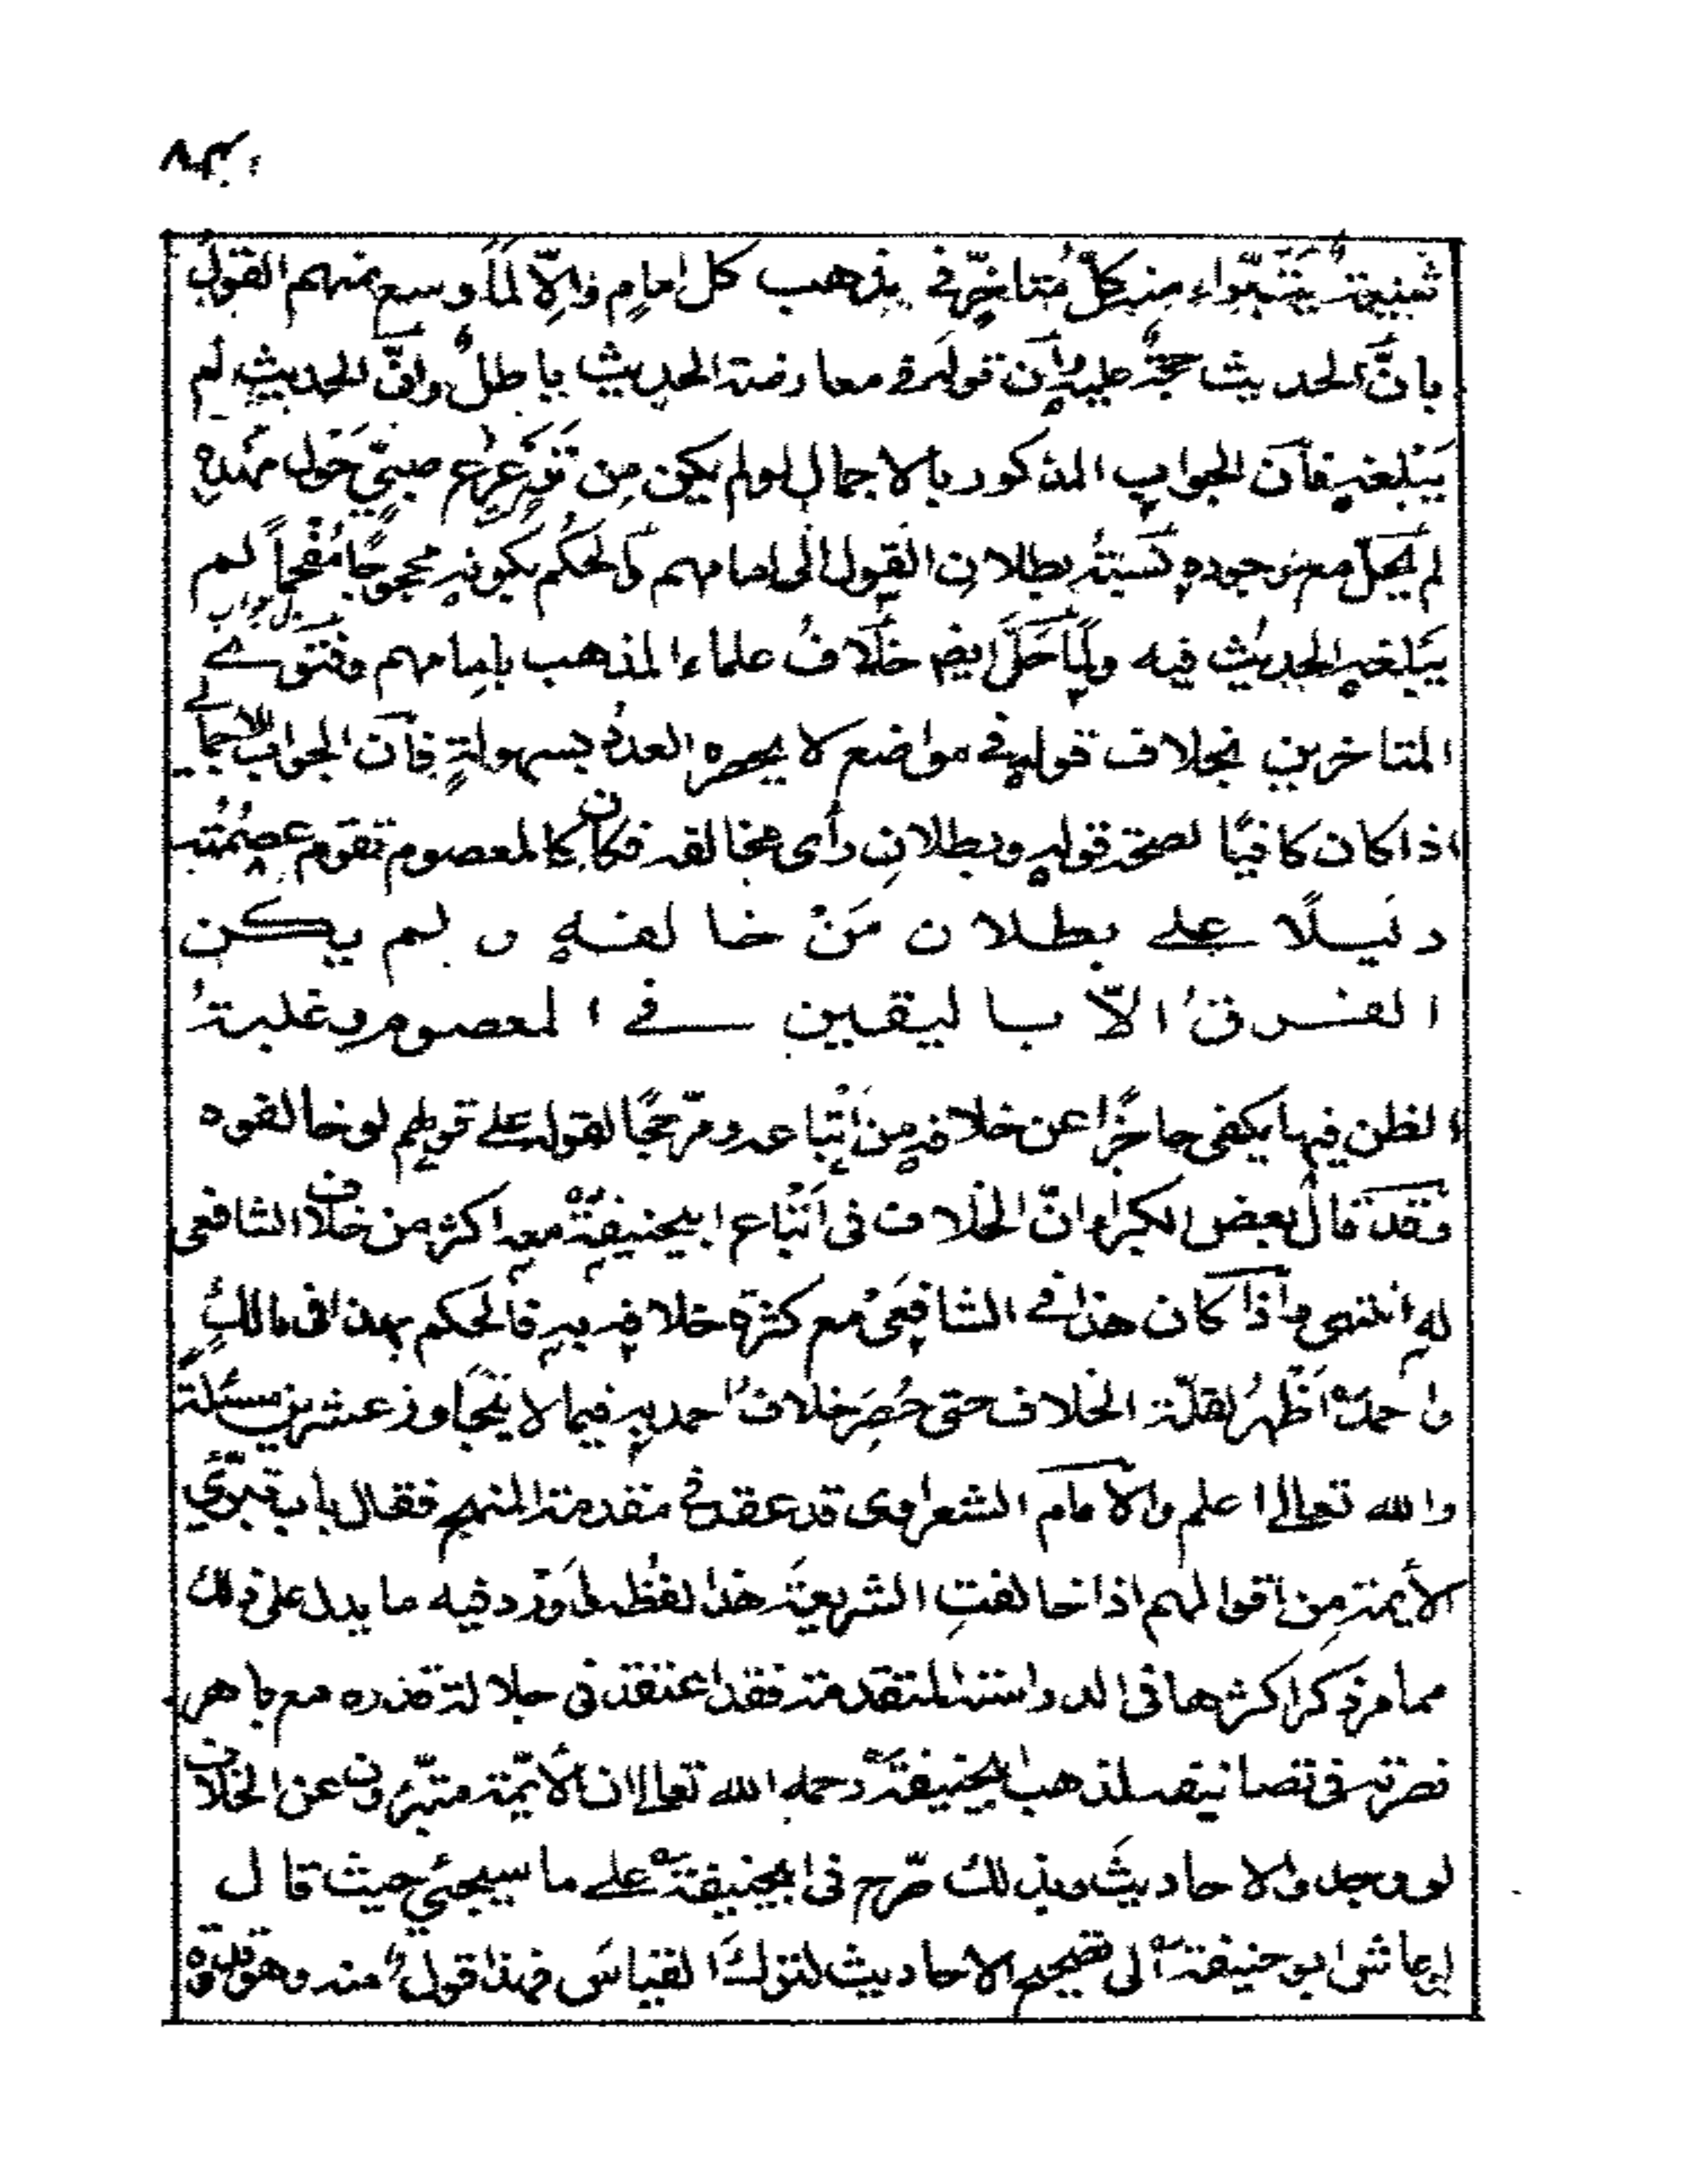 شنيعة يتبرّاء منه كلّ متاخّر في مذهب كل امامٍ والّا لما وسع منهم القول
بانّ الحديث حجّة عليه وان قوله في معارضة الحديث باطل وانّ الحديث لم
يبلغه فان الجواب المذكور بالاجمال لو لم يكن من ترعرع صبيّ حول مهده
لم يحلّ مع وجوده نسبة بطلان القول الى امامهم والحكم بكونه محجوجًا مفحمًا لم
يبلغه الحديث فيه ولما حلّ ايضا خلاف علماء المذهب بامامهم وفتوے
المتاخرين بخلاف قوله في مواضع لا يحصره العدّ بسهولةٍ فان الجواب الاجمالي
اذا كان كافيًا لصحة قوله وبطلان رأى مخالفه فكان كالمعصوم تقوم عصمته
دليلًا على بطلان مَنْ خالفه ولم يكن
الفرق الّا باليقين في المعصوم وغلبة
الظن فيها يكفى حاجزًا عن خلافه من اتباعه ومرجحًا لقوله على قولهم لو خالفوه
وقد قال بعض الكبراء انّ الخلاف فى اتباع ابيحنيفة معه اكثر من خلاف الشافعى
له انتهى واذا كان هذا في الشافعى مع كثرة خلافه به فالحكم بهذا فى مالك
واحمد اظهر لقلّة الخلاف حتى حُصِرَ خلاف احمد به فيما لا يتجاوز عشرين مسئلة
والله تعالى اعلم والامام الشعراوى قد عقد في مقدمة المنهج فقال باب تبرّي
الأيمة من اقوالهم اذا خالفت الشريعة هذا لفظه واورد فيه ما يدل على ذلك
مما مر ذكر اكثرها فى الدراسة المتقدمة فقد اعتقد فى جلالة قدره مع باهر
نصرته فى تصانيفه لمذهب ابيحنيفة رحمه الله تعالى ان الأيمّة متبرّؤن عن الخلاف
لو وجدوا الاحاديث وبذلك صرّح فى ابيحنيفة على ما سيجئي حيث قال
لو عاش ابو حنيفة الى تصحيح الاحاديث لترك القياس فهذا قول منه وهو قدوة